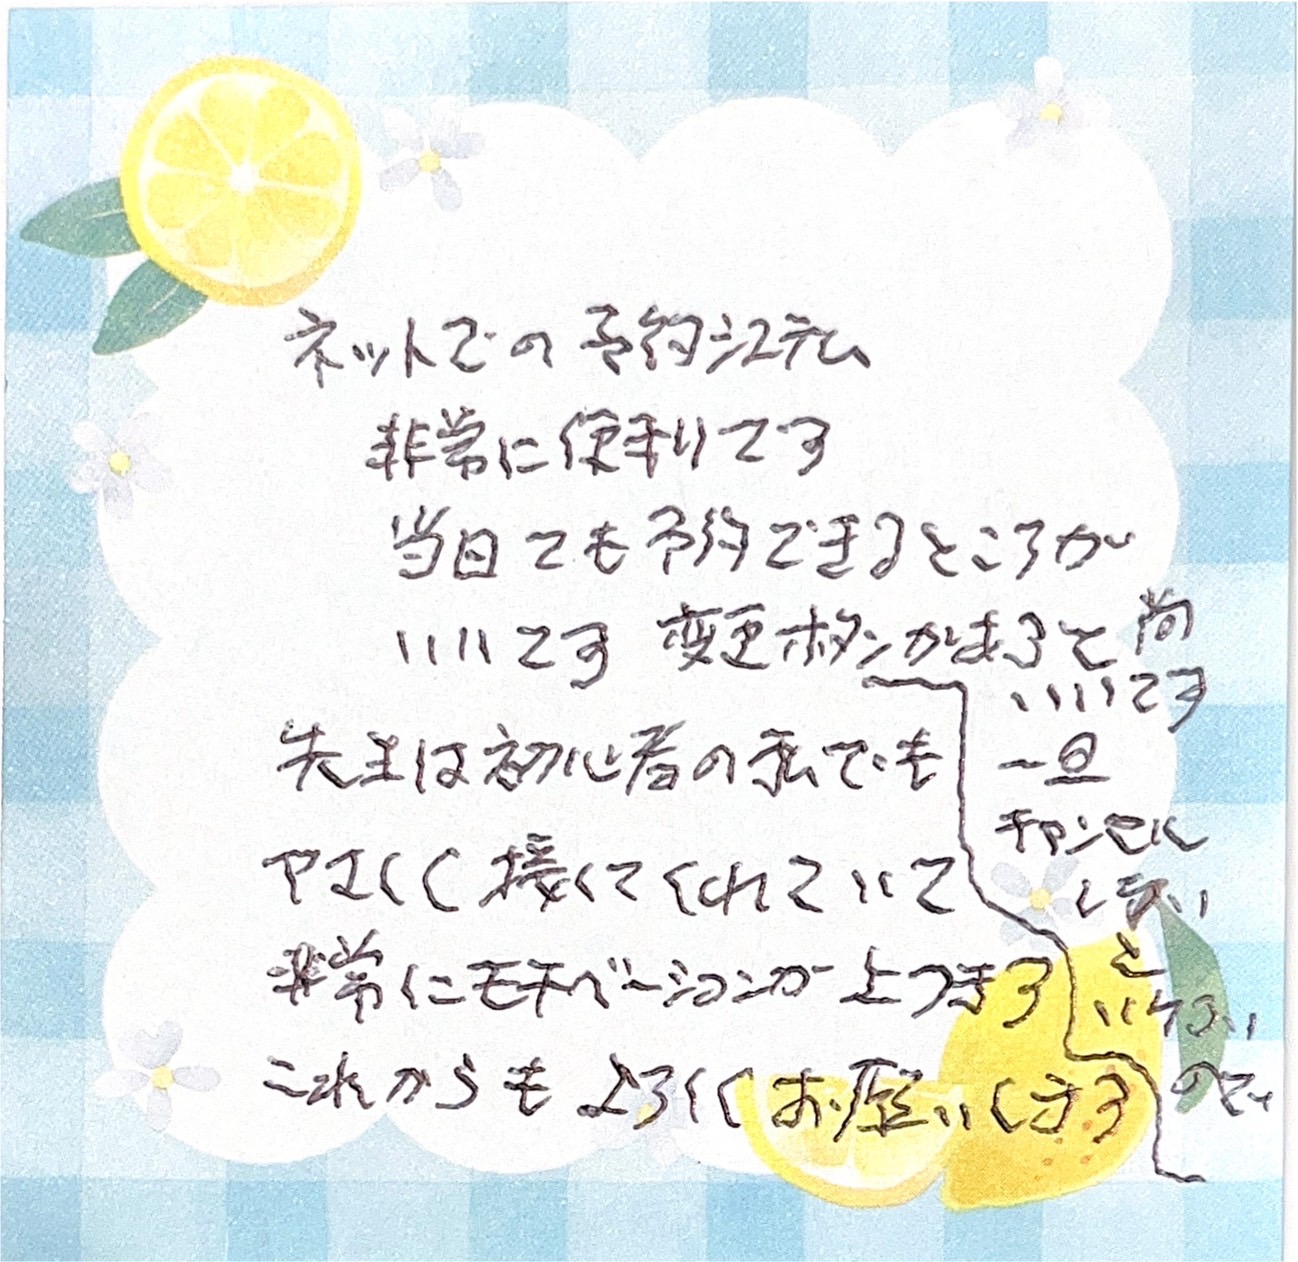 ネットでの予約システム
非常に便利です
当日でも予約できるところが
いいです 変更ボタンがあると尚
いいです
一旦
キャンセル
しない
と
いけない
ので、
先生は初心者の私でも
やさしく接してくれていて
非常にモチベーションが上がります
これからもよろしくお願いします